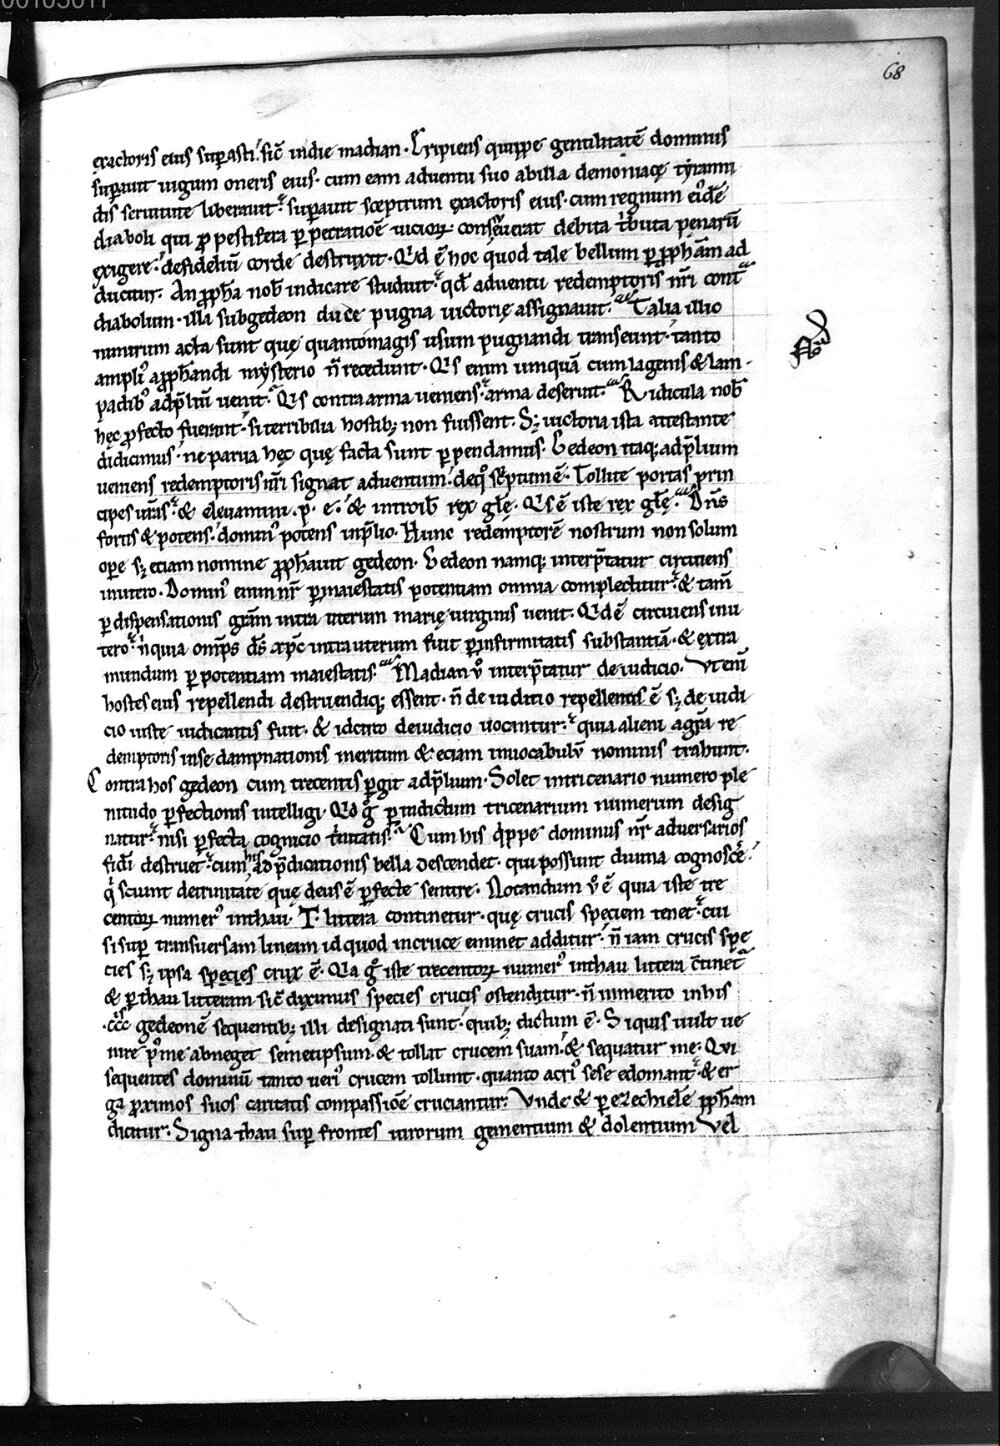 68
exactoris eius sup̱asti. sic̄ indie madian. Eripiens quippe gentilitatē dominus
sup̱auit iugum oneris eius. cum eam aduentu suo abilla demoniacę tẏranni
dis seruitute liberauit. sup̱auit sceptrum exactoris eius. cum regnum eiꝰdē
diaboli qui ꝓ pestifera ꝑpetratioē uicioꝝ. consueuerat debita tͥbuta penarū
exigere. defideliū corde destruxit. Qd̄ ē hoc quod tale bellum ꝑ ꝓph̄am ad
ducitur. An ꝓph̄a nob̄ indicare studuit. qd̄ aduentū redemptoris nr̄i cont͛
diabolum. illa subgedeon duce pugnę uictorię assignauit. Talia illic
nimirum acta sunt quę quantomagis usum pugnandi transeunt. tanto
ampliꝰ a ꝓph̄andi mysterio n̄ recedunt. Q̄s enim umquā cum lagenis & lam
padibꝰ adp̄liū uenit. Q̄s contra arma ueniens. arma deseruit. Ridicula nob̄
hęc ꝓfecto fuerant. si terribilia hostibꝫ non fuissent. Sꝫ uictoria ista attestante
didicimus. ne parua hęc quę facta sunt ꝑpendamus. Gedeon itaqꝫ adp̄lium
ueniens redemptoris nr̄i signat aduentum. deqͦ sc̄ptum ē. Tollite portas prin
cipes ur̄as. & eleuamini. p. e. & introib̄ rex gl̄ę. Q̄s ē iste rex gl̄ę. Dn̄s
fortis & potens. dominꝰ potens inp̄lio. Hunc redemptorē nostrum non solum
ope sꝫ etiam nomine ꝓph̄auit gedeon. Gedeon namqꝫ interp̄tatur circuiens
inutero. Dominꝰ enim nr̄ ꝑ maiestatis potentiam omnia complectitur. & tam̄
ꝑ dispensationis gr̄am intra uterum marię uirginis uenit. Qd̄ ē circuiens inu
tero. n̄ quia omp̄s ds̄ xp̄c intra uterum fuit ꝑ infirmitatis substantiā. & extra
mundum ꝑ potentiam maiestatis. Madian ū interp̄tatur de iudicio. Vt enī
hostes eius repellendi destruendiqꝫ essent. n̄ de iuditio repellentis ē sꝫ de iudi
cio iuste iudicantis fuit. & idcirco deiudicio uocantur. quia alieni agr̄a re
demptoris iuste dampnationis meritum & eciam inuocabulū nominis trahunt.
Contra hos gedeon cum trecentis ꝑgit adp̄lium. Solet intricenario numero ple
nitudo ꝑfectionis intelligi. Qd̄ gͦ ꝑ indictum tricenarium numerum desig
natur. nisi ꝑfecta cognicio tͥnitatis. Cum his qͥppe dominus nr̄ aduersarios
fidei destruet. cum his ad p̄dicationis bella descendet. qui possunt diuina cognosce͛.
qͥ sciunt detrinitate que deus ē ꝑfecte sentire. Notandum ū ē quia iste tre
centoꝝ numerꝰ inthau. T. littera continetur. quę crucis speciem tenet. cui
si suꝑ transuersam lineam id quod incruce eminet additur. n̄ iam crucis spe
cies sꝫ ipsa species crux ē. Qa gͦ iste trecentoꝝ numerꝰ inthau littera c̄tinet͛
& ꝑ thau litteram sic̄ diximus species crucis ostenditur. n̄ inmerito inhis
.ccc͛. gedeonē sequentibꝫ illi designati sunt. quibꝫ dictum ē. Siquis uult ue
nire pͦ me abneget semetipsum. & tollat crucem suam. & sequatur me. Qui
sequentes dominū tanto ueriꝰ crucem tollunt. quanto acriꝰ sese edomant. & er
ga proximos suos caritatis compassiōe cruciantur. Vnde & ꝑ ezechielē ꝓph̄am
dicitur. Signa thau suꝑ frontes uirorum gementium & dolentium Vel